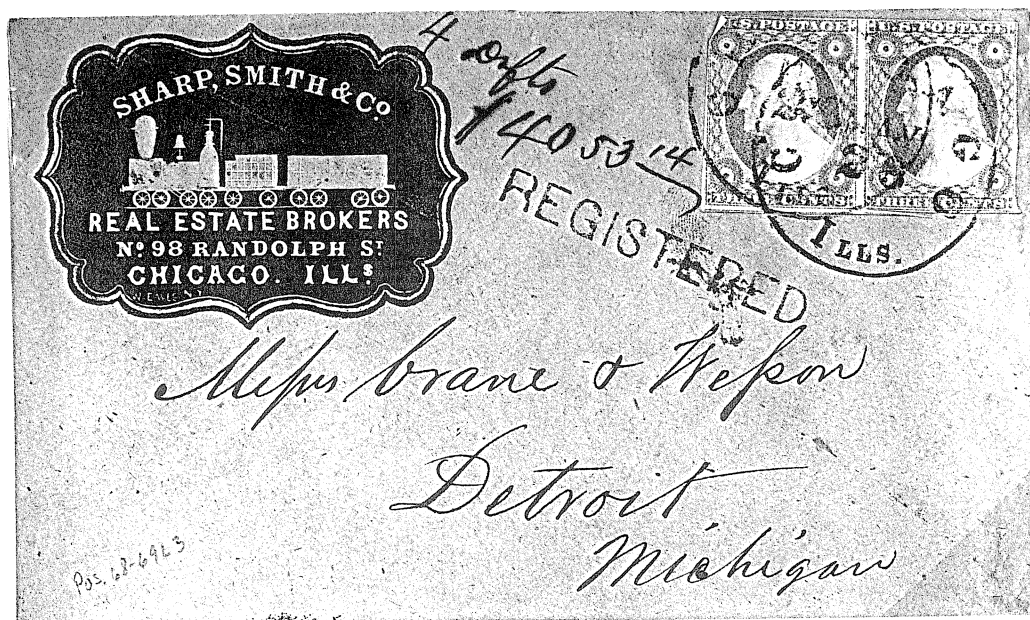 SHARP, SMITH & Co
REAL ESTATE BROKERS
No. 98 RANDOLPH ST
CHICAGO. ILLs.
4 dfts
$4053 14
REGISTERED
U.S. POSTAGE
U.S. POSTAGE
THREE CENTS
THREE CENTS
ILLS.
Messrs Crane & Wesson
Detroit
Michigan
Pos. 68-6963